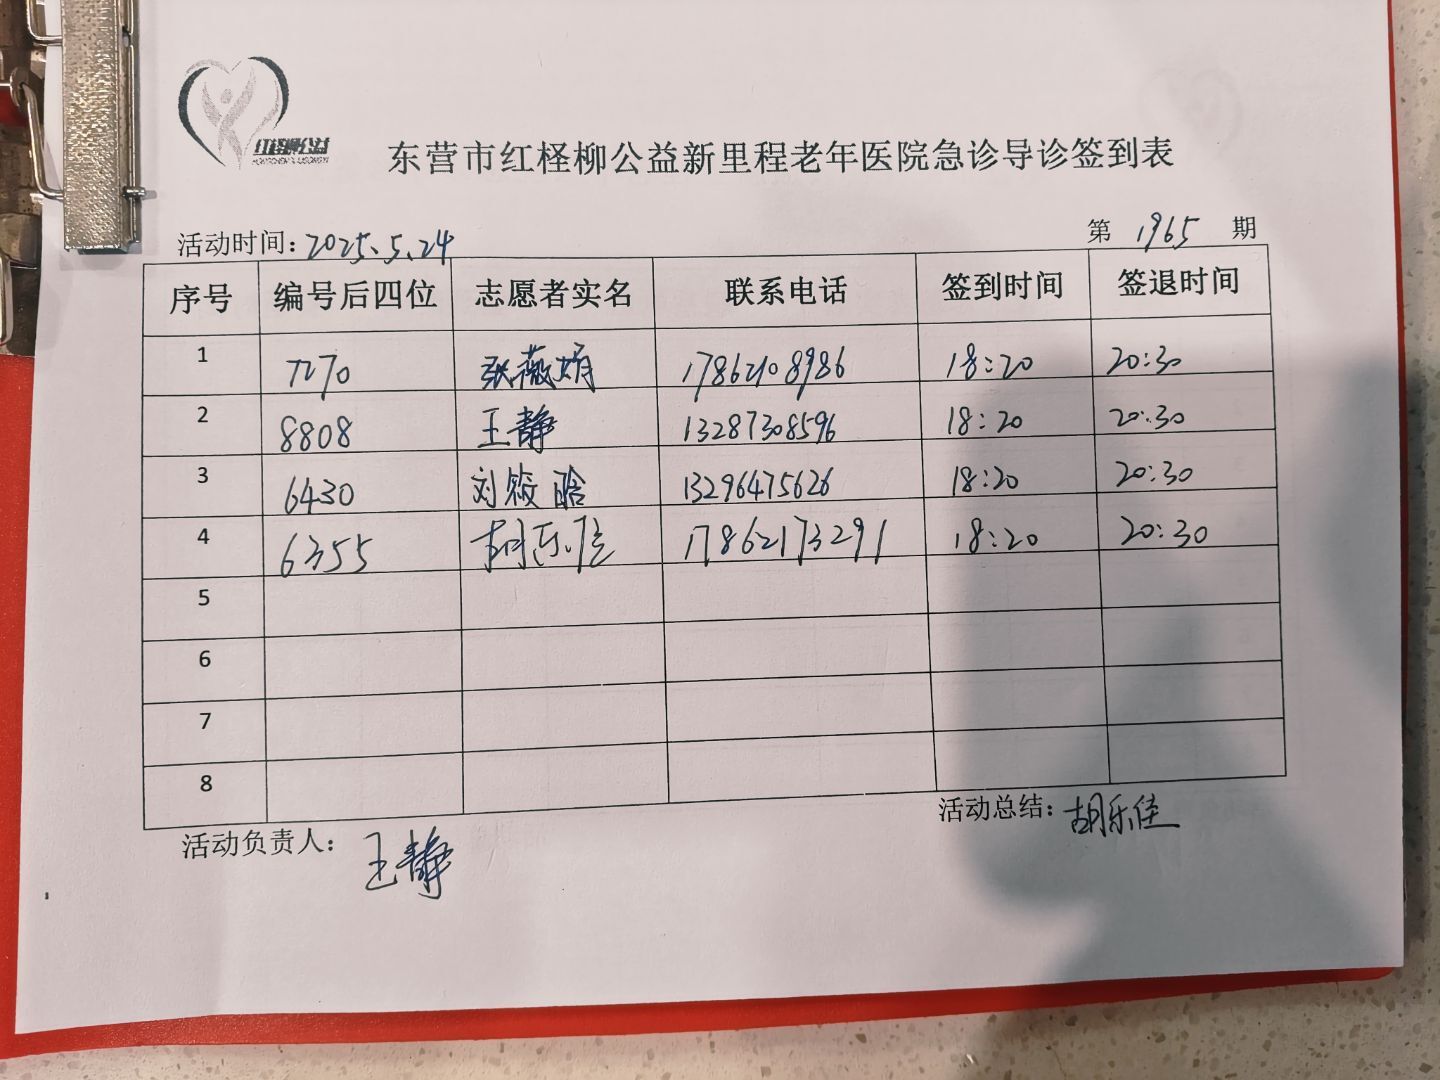 红柽柳公益
东营市红柽柳公益新里程老年医院急诊导诊签到表
活动时间: 2025.5.24 第 1965 期
序号 编号后四位 志愿者实名 联系电话 签到时间 签退时间
1 7270 张薇娟 17862108986 18:20 20:30
2 8808 王静 13287308596 18:20 20:30
3 6430 刘筱晗 13296475626 18:20 20:30
4 6355 胡乐佳 17862173291 18:20 20:30
5
6
7
8
活动负责人: 王静 活动总结: 胡乐佳